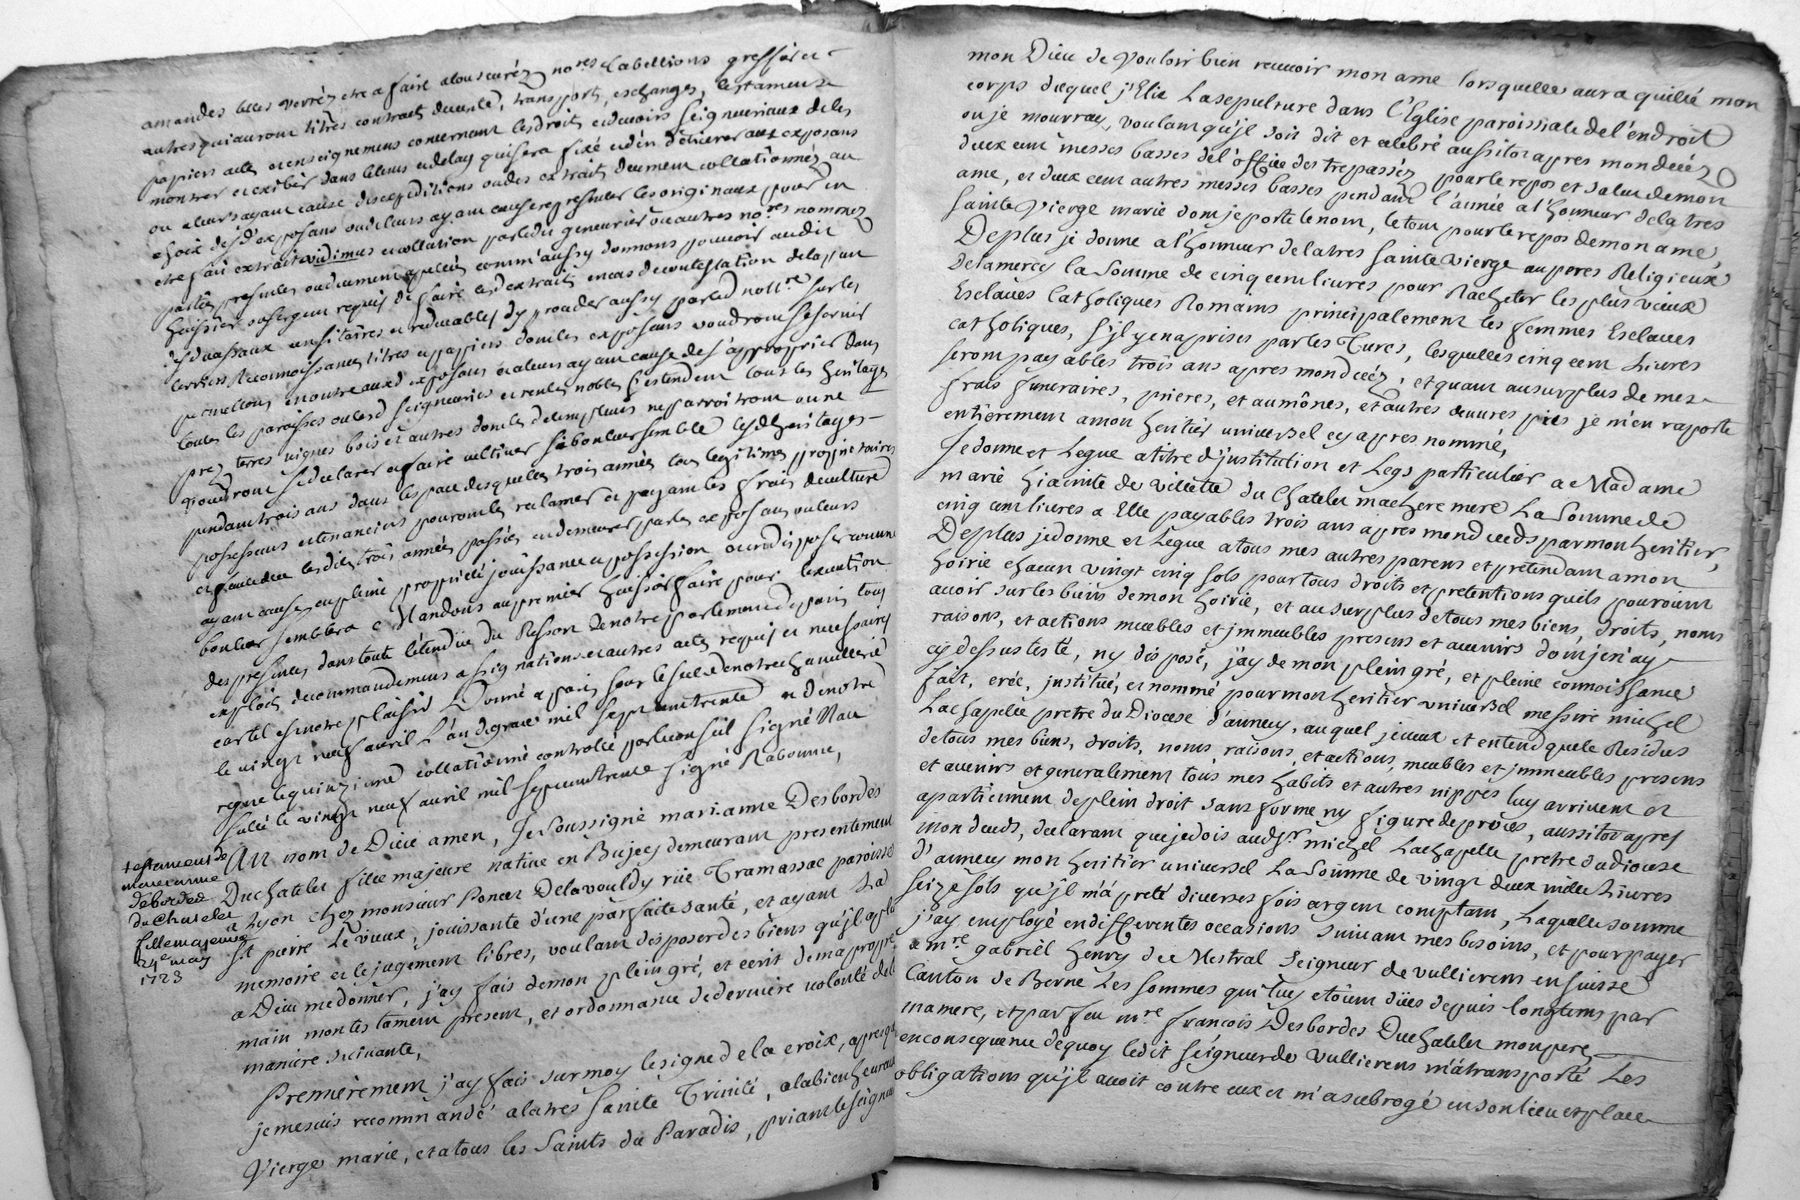 amandes telles verrez etre a faire alous curéz no.res tabellions greffiers
autres qui auront titres contract de vente, transports, eschanges, testamens
papiers actes enseignemens concernant les droits et devoirs seigneuriaux de les
montrer et exiber dans tems et delay qui sera fixé et d'en délivrer aux exposans
ou a leurs ayant cause des expeditions ou des extraits deument collationnéz au
choix desd. exposans ou de leurs ayant cause representer les originaux pour en
etre fait extrait vidimus et collation par ledit ou autres no.res nommez
parties presentes ou deument appelées comm'aussy donnons pouvoir audit
huissier ou sergent requis de faire lesd. extraits en cas de contestation de la part
desd. vassaux censitaires et redevables d'y proceder aussy par led. nott.re sur les
terriers Reconnoissances titres et papiers dont les exposans voudront se servir
permettons en outre auxd. exposans et a leurs ayant cause de s'approprier dans
toutes les paroisses ou lesd. seigneuries et rentes nobles s'estendent tous les heritages
prez terres vignes bois et autres dont les detempteurs ne parroitront ou ne
voudront se declarer et faire cultiver si bon leur semble lesd. heritages
pendant trois ans dans l'espace desquelles trois années tous legitimes proprietaires
possesseurs et tenanciers pourront les reclamer en payant les frais de culture
et passé lesdites trois années passées en demeurer par les exposans ou leurs
ayant cause en pleine proprieté jouissance et possession ou en disposer comme
bon leur semblera Mandons au premier huissier faire pour l'execution
des presentes dans toute l'étendue du Ressort de notre parlement de paris tous
exploits de commandemens assignations et autres actes requis et necessaires
car tel est notre plaisir Donné a paris sous le scel de notre chancellerie
le vingt neuf avril L'an de grace mil sept cent trente et de notre
regne le quinzieme collationné controllé par le conseil signé Nau
scellé le vingt neuf avril mil sept cent trente signé Rabouine,
testament de
marieanne
deborded
du Chatelet
fille majeure
24e may
1723
Au nom de Dieu amen, Je Soussigné marianne Desbordes
Duchatelet fille majeure native en Bugey demeurant presentement
a Lyon chez monsieur Poncet Delavouldy rüe Tramassac paroisse
st. pierre Le vieux, jouissante d'une parfaite santé, et ayant La
memoire et le jugement libres, voulant disposer des biens qu'il a plu
a Dieu me donner, j'ay fais de mon plein gré, et ecrit de ma propre
main mon testament present, et ordonnance de derniere volonté de la
maniere suivante,
Premièrement j'ay fais sur moy le signe de la croix, apres quoy
je me suis recommandé a la tres sainte Trinité, a la bienheureuse
Vierge marie, et a tous les Saints du Paradis, priant le seigneur
mon Dieu de vouloir bien recevoir mon ame lorsquelle aura quitté mon
corps duquel j'Elis La sepulture dans l'Eglise paroissiale de l'endroit
ou je mourray, voulant qu'il soit dit et celebré aussitot apres mon decéz
deux cent messes basses de l'office des trepasséz pour le repos et salut de mon
ame, et deux cent autres messes basses pendant l'année a l'honneur de la tres
sainte Vierge marie dont je porte le nom, le tout pour le repos de mon ame,
De plus je donne a l'honneur de la tres sainte Vierge au peres Religieux
de la mercy la somme de cinq cent livres pour Racheter les plus vieux
Esclaves Catholiques Romains principalement les femmes Esclaves
catholiques, s'jl y en a prises par les Turcs, lesquelles cinq cent Livres
seront payables trois ans apres mon decéz, et quant au surplus de mes
frais funeraires, prieres, et aumônes, et autres oeuvres pies je m'en raporte
entièrement a mon heritier universel cy apres nommé,
Je donne et Legue a titre d'jnstitution et Legs particulier a Madame
marie hiacinte de villette du Chatelet ma chere mere La Somme de
cinq cent livres a Elle payables trois ans apres mon deceds par mon heritier,
De plus je donne et Legue a tous mes autres parens et pretendant a mon
hoirie chacun vingt cinq sols pour tous droits et pretentions quils pouroient
avoir sur les biens de mon hoirie, et au surplus de tous mes biens, droits, noms
raisons, et actions meubles et jmmeubles presens et avenirs dont je n'ay
cy dessus testé, ny disposé, j'ay de mon plein gré, et pleine connoissance
fait, créé, jnstitué, et nommé pour mon heritier universel messire michel
Lachapelle pretre du Diocese d'annecy, auquel je veux et entend que le Residus
de tous mes biens, droits, noms raisons, et actions, meubles et jmmeubles presens
et avenirs et generalement tous mes habits et autres nippes luy arrivent et
apartiennent de plein droit sans forme ny figure de procès, aussitot apres
mon deceds, declarant que je dois aud. sr. michel Lachapelle pretre dudiocese
d'annecy mon heritier universel La Somme de vingt deux mille Livres
seize sols qu'jl m'a preté diverses fois argent comptant, Laquelle somme
j'ay employé en differentes occasions suivant mes besoins, et pour payer
a m.re gabriël henry de Mestral Seigneur de vullierens en suisse
Canton de Berne Les sommes qui luy etoient dües depuis longtems par
ma mere, et par feu m.re françois Desbordes Duchatelet mon pere
en consequence dequoy ledit seigneur de vullierens m'a transporté Les
obligations qu'jl avoit contre eux et m'a subrogé en son lieu et place